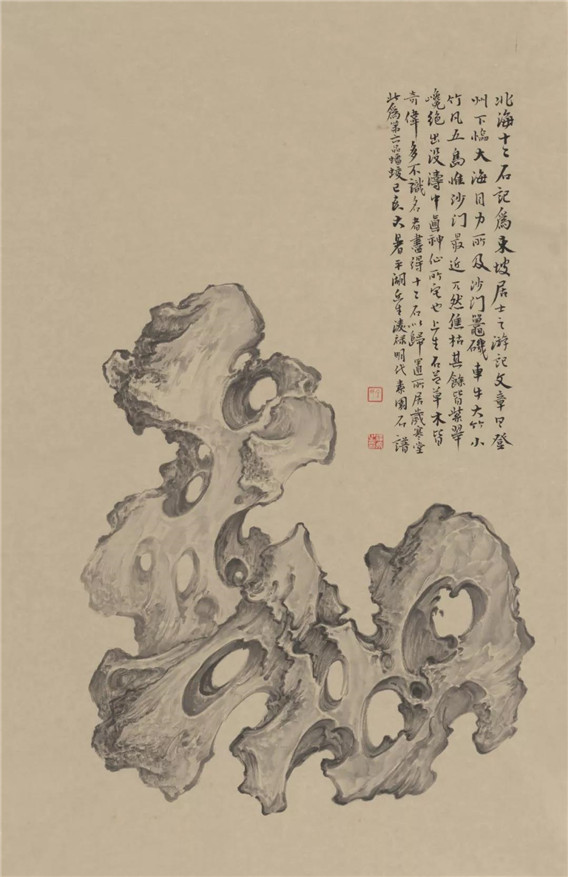 北海十二石記爲東坡居士之游記文章曰登
州下臨大海目力所及沙门鼉磯車牛大竹小
竹凡五島惟沙门最近兀然焦枯其餘皆紫翠
巉絶出没濤中真神仙所宅也上生石芝草木皆
奇偉多不識名者盡得十二石以歸置所居歲寒堂
此爲第六品己亥大暑平湖明代素園石譜